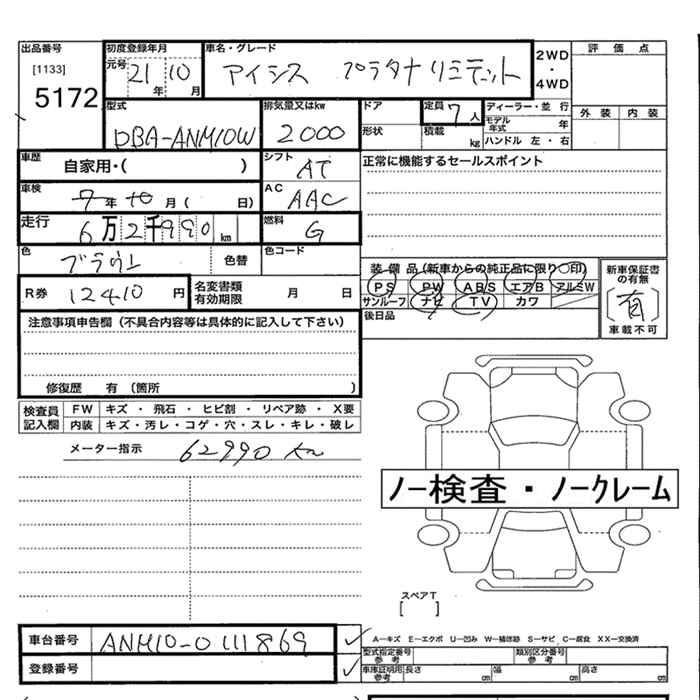 出品番号 初度登録年月 車名・グレード 2WD ・ 4WD 評価点
[1133] 元号 21年 10月 アイシス プラタナリミテット
5172
型式 排気量又はkw ドア 定員 7人 ディーラー・並行 外装 内装
DBA-ANM10W 2000 形状 積載 kg モデル年式 年
ハンドル 左・右
車歴 自家用・( ) シフト AT 正常に機能するセールスポイント
車検 7年 10月( 日) AC AAC
走行 6万2千990km 燃料 G
色 ブラウン 色替 色コード
装備品(新車からの純正品に限り○印) 新車保証書の有無
R券 12410円 名変書類有効期限 月 日 PS PW ABS エアB アルミW [有]
サンルーフ ナビ TV カワ 車載不可
後日品
注意事項申告欄(不具合内容等は具体的に記入して下さい)
修復歴 有(箇所 )
検査員記入欄 FW キズ・飛石・ヒビ割・リペア跡・X要
内装 キズ・汚レ・コゲ・穴・スレ・キレ・破レ
メーター指示 62990km
ノー検査・ノークレーム
スペアT
[ ]
車台番号 ANM10-0111869 A-キズ E-エクボ U-凹み W-補修跡 S-サビ C-腐食 XX-交換済
型式指定番号 参考 類別区分番号 参考
登録番号 車庫証明用 参考 長さ cm 幅 cm 高さ cm